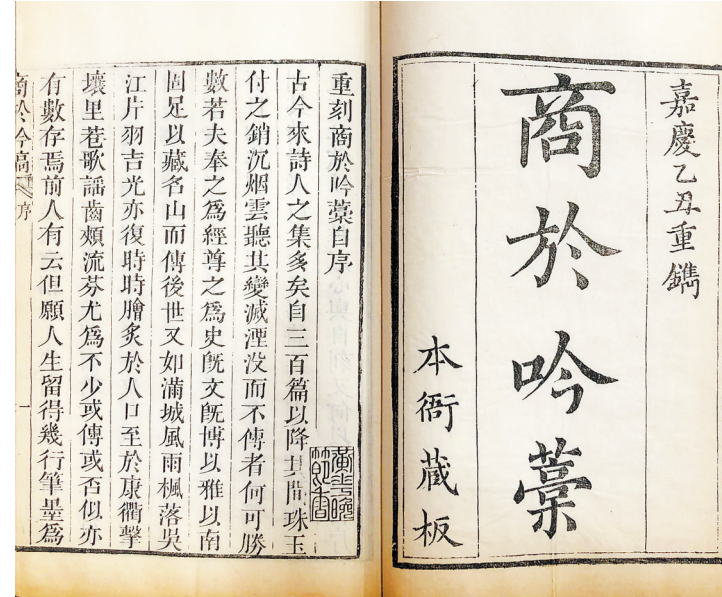 嘉慶乙丑重鐫
商於吟藁
本衙藏板
重刻商於吟藁自序
古今來詩人之集多矣自三百篇以降其間珠玉
付之銷沉烟雲聽其變滅湮沒而不傳者何可勝
數若夫奉之爲經尊之爲史旣文旣博以雅以南
固足以藏名山而傳後世又如滿城風雨楓落吳
江片羽吉光亦復時時膾炙於人口至於康衢擊
壤里巷歌謡齒頰流芬尤爲不少或傳或否似亦
有數存焉前人有云但願人生留得幾行筆墨爲
商於吟稿
序
一